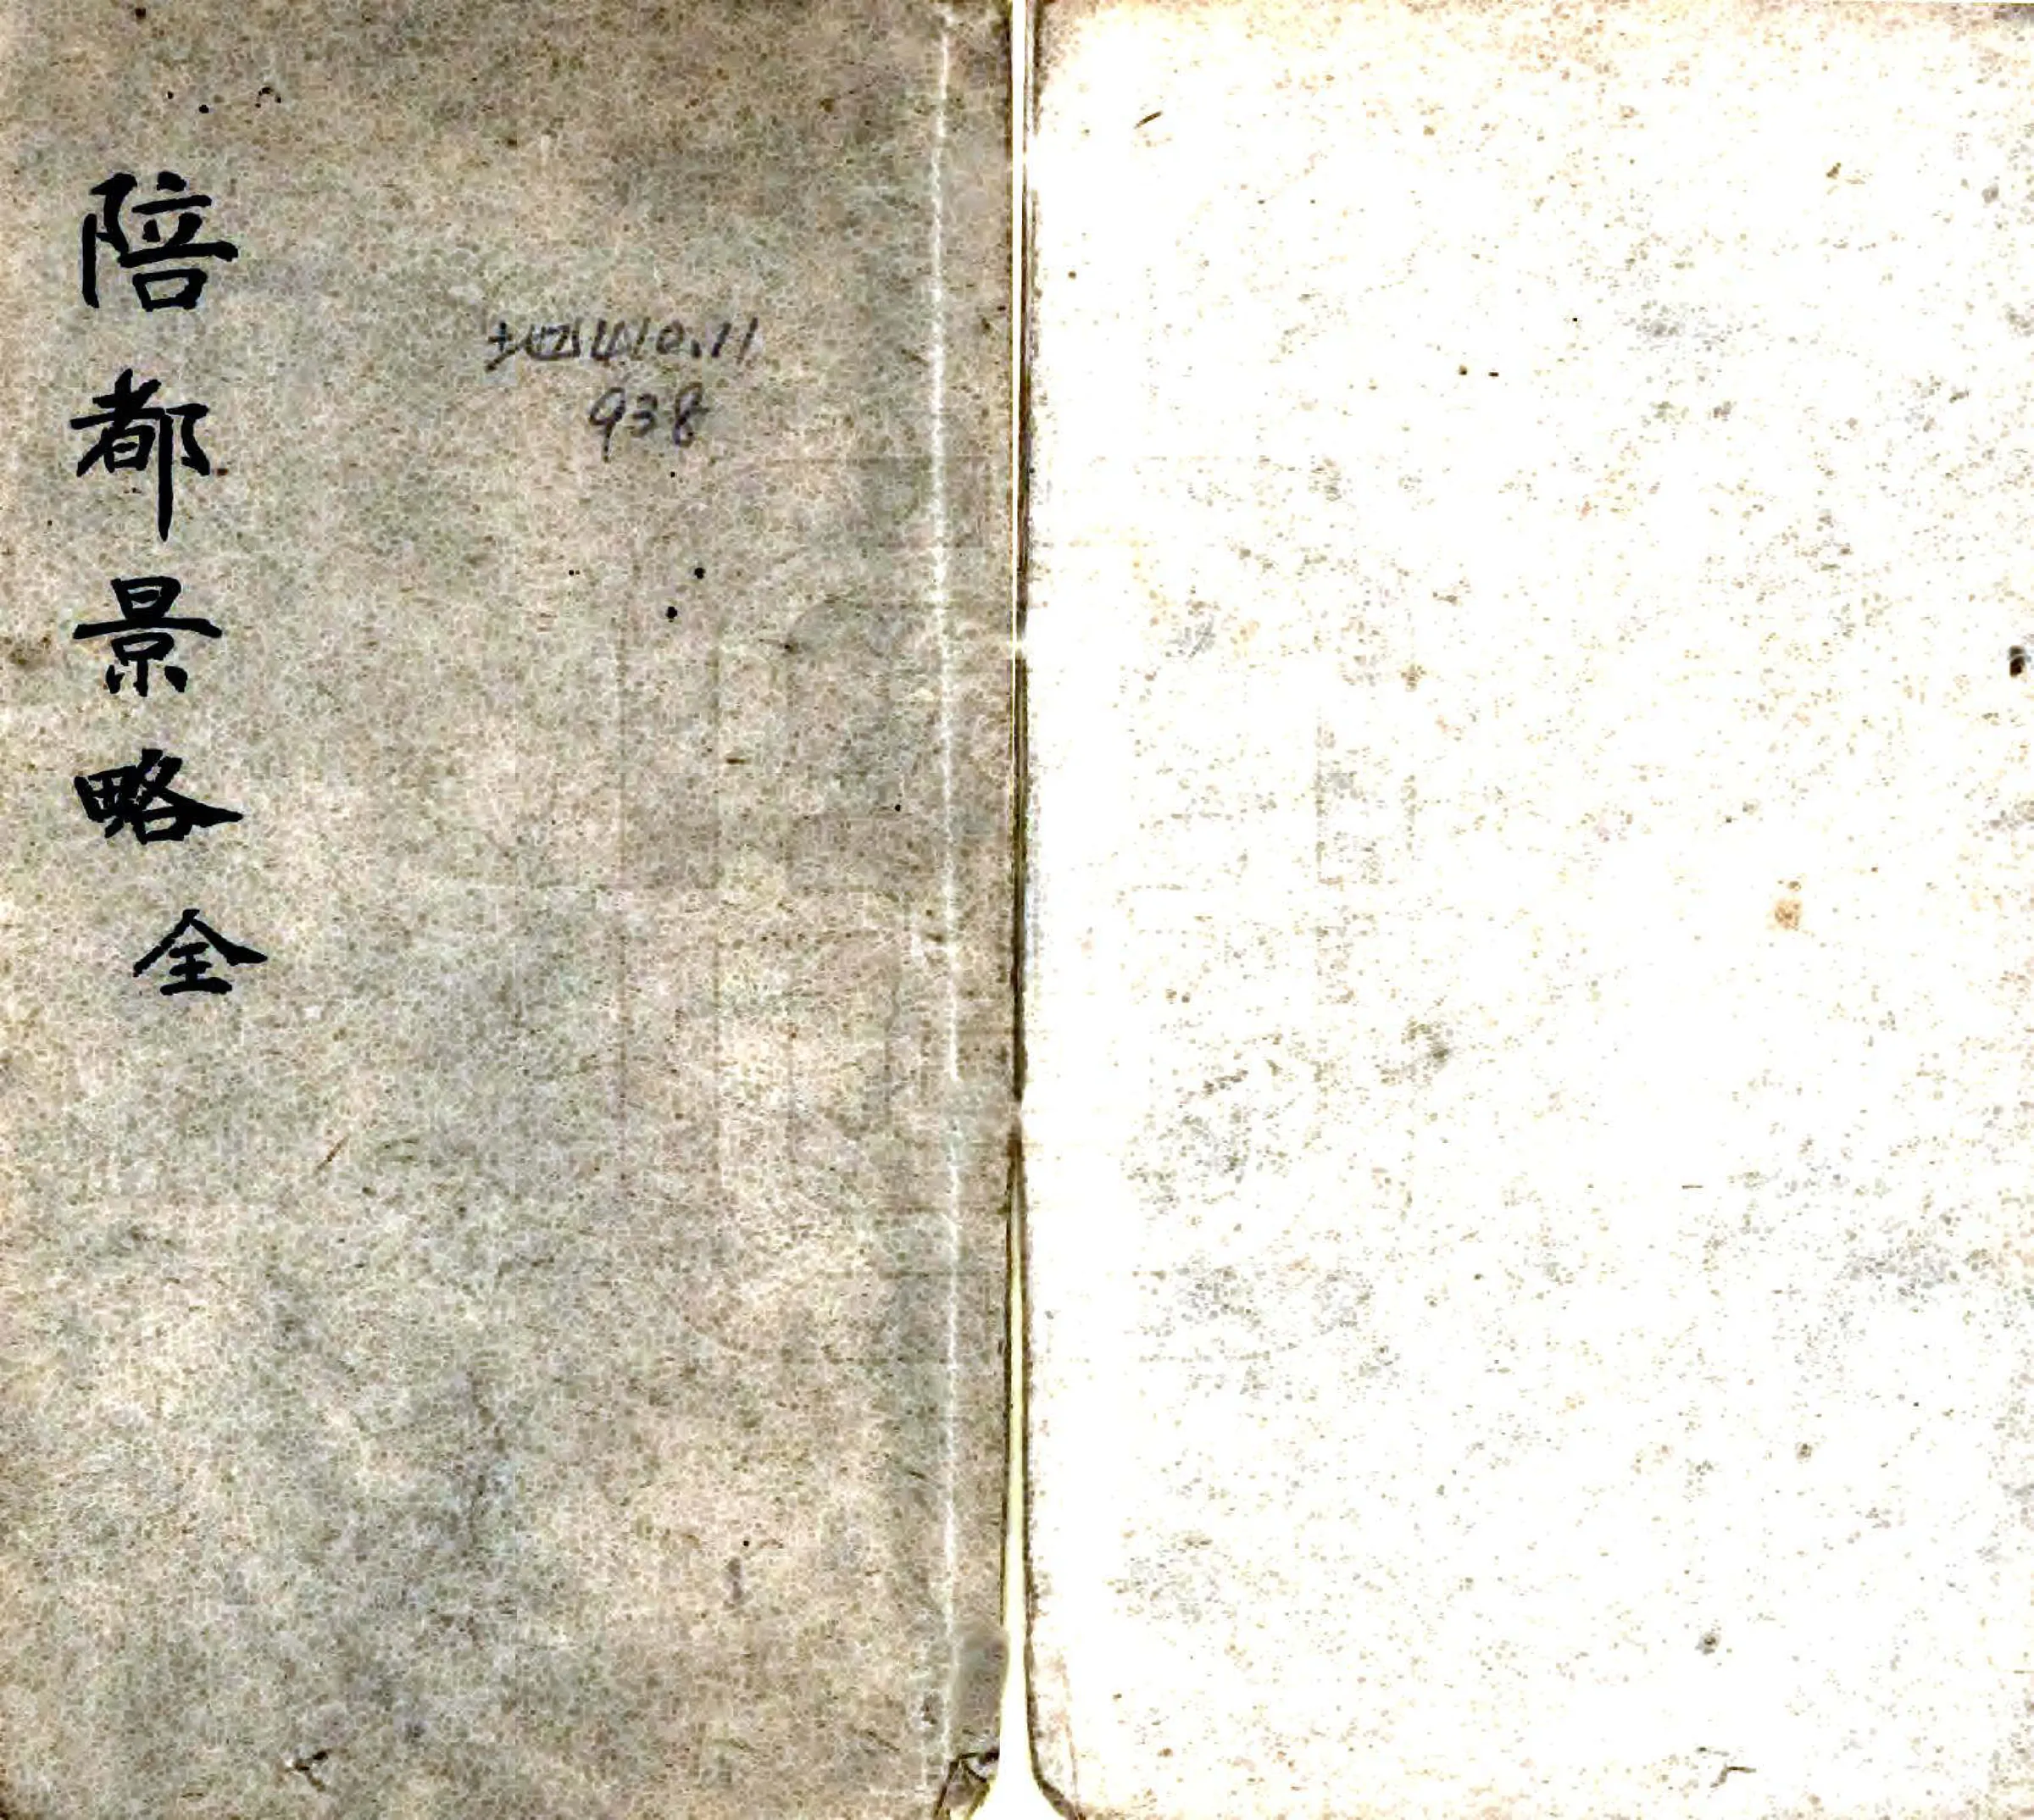 陪都景略 全
地410.11
938